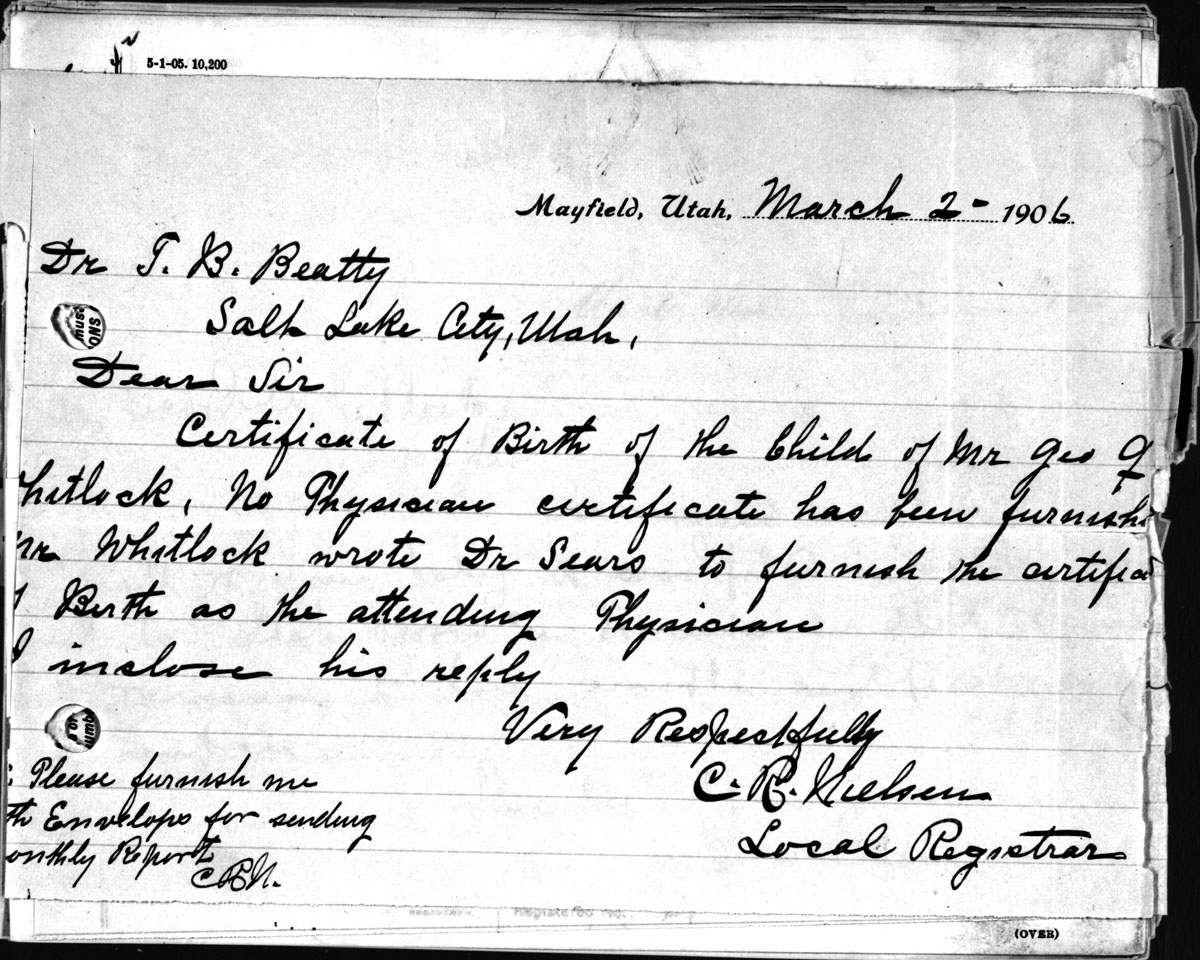 5-1-05. 10,200
Mayfield, Utah, March 2- 1906
Dr T. B. Beatty
Salt Lake City, Utah,
Dear Sir
Certificate of Birth of the Child of Mr Geo
hitlock, No Physician certificate has been furnishe
Mr Whitlock wrote Dr Sears to furnish the certifica
Birth as the attending Physician
I inclose his reply
Very Respectfully
C. R. Nielsen
Local Registrar
Please furnish me
th Envelops for sending
onthly Report
CRN.
(OVER)